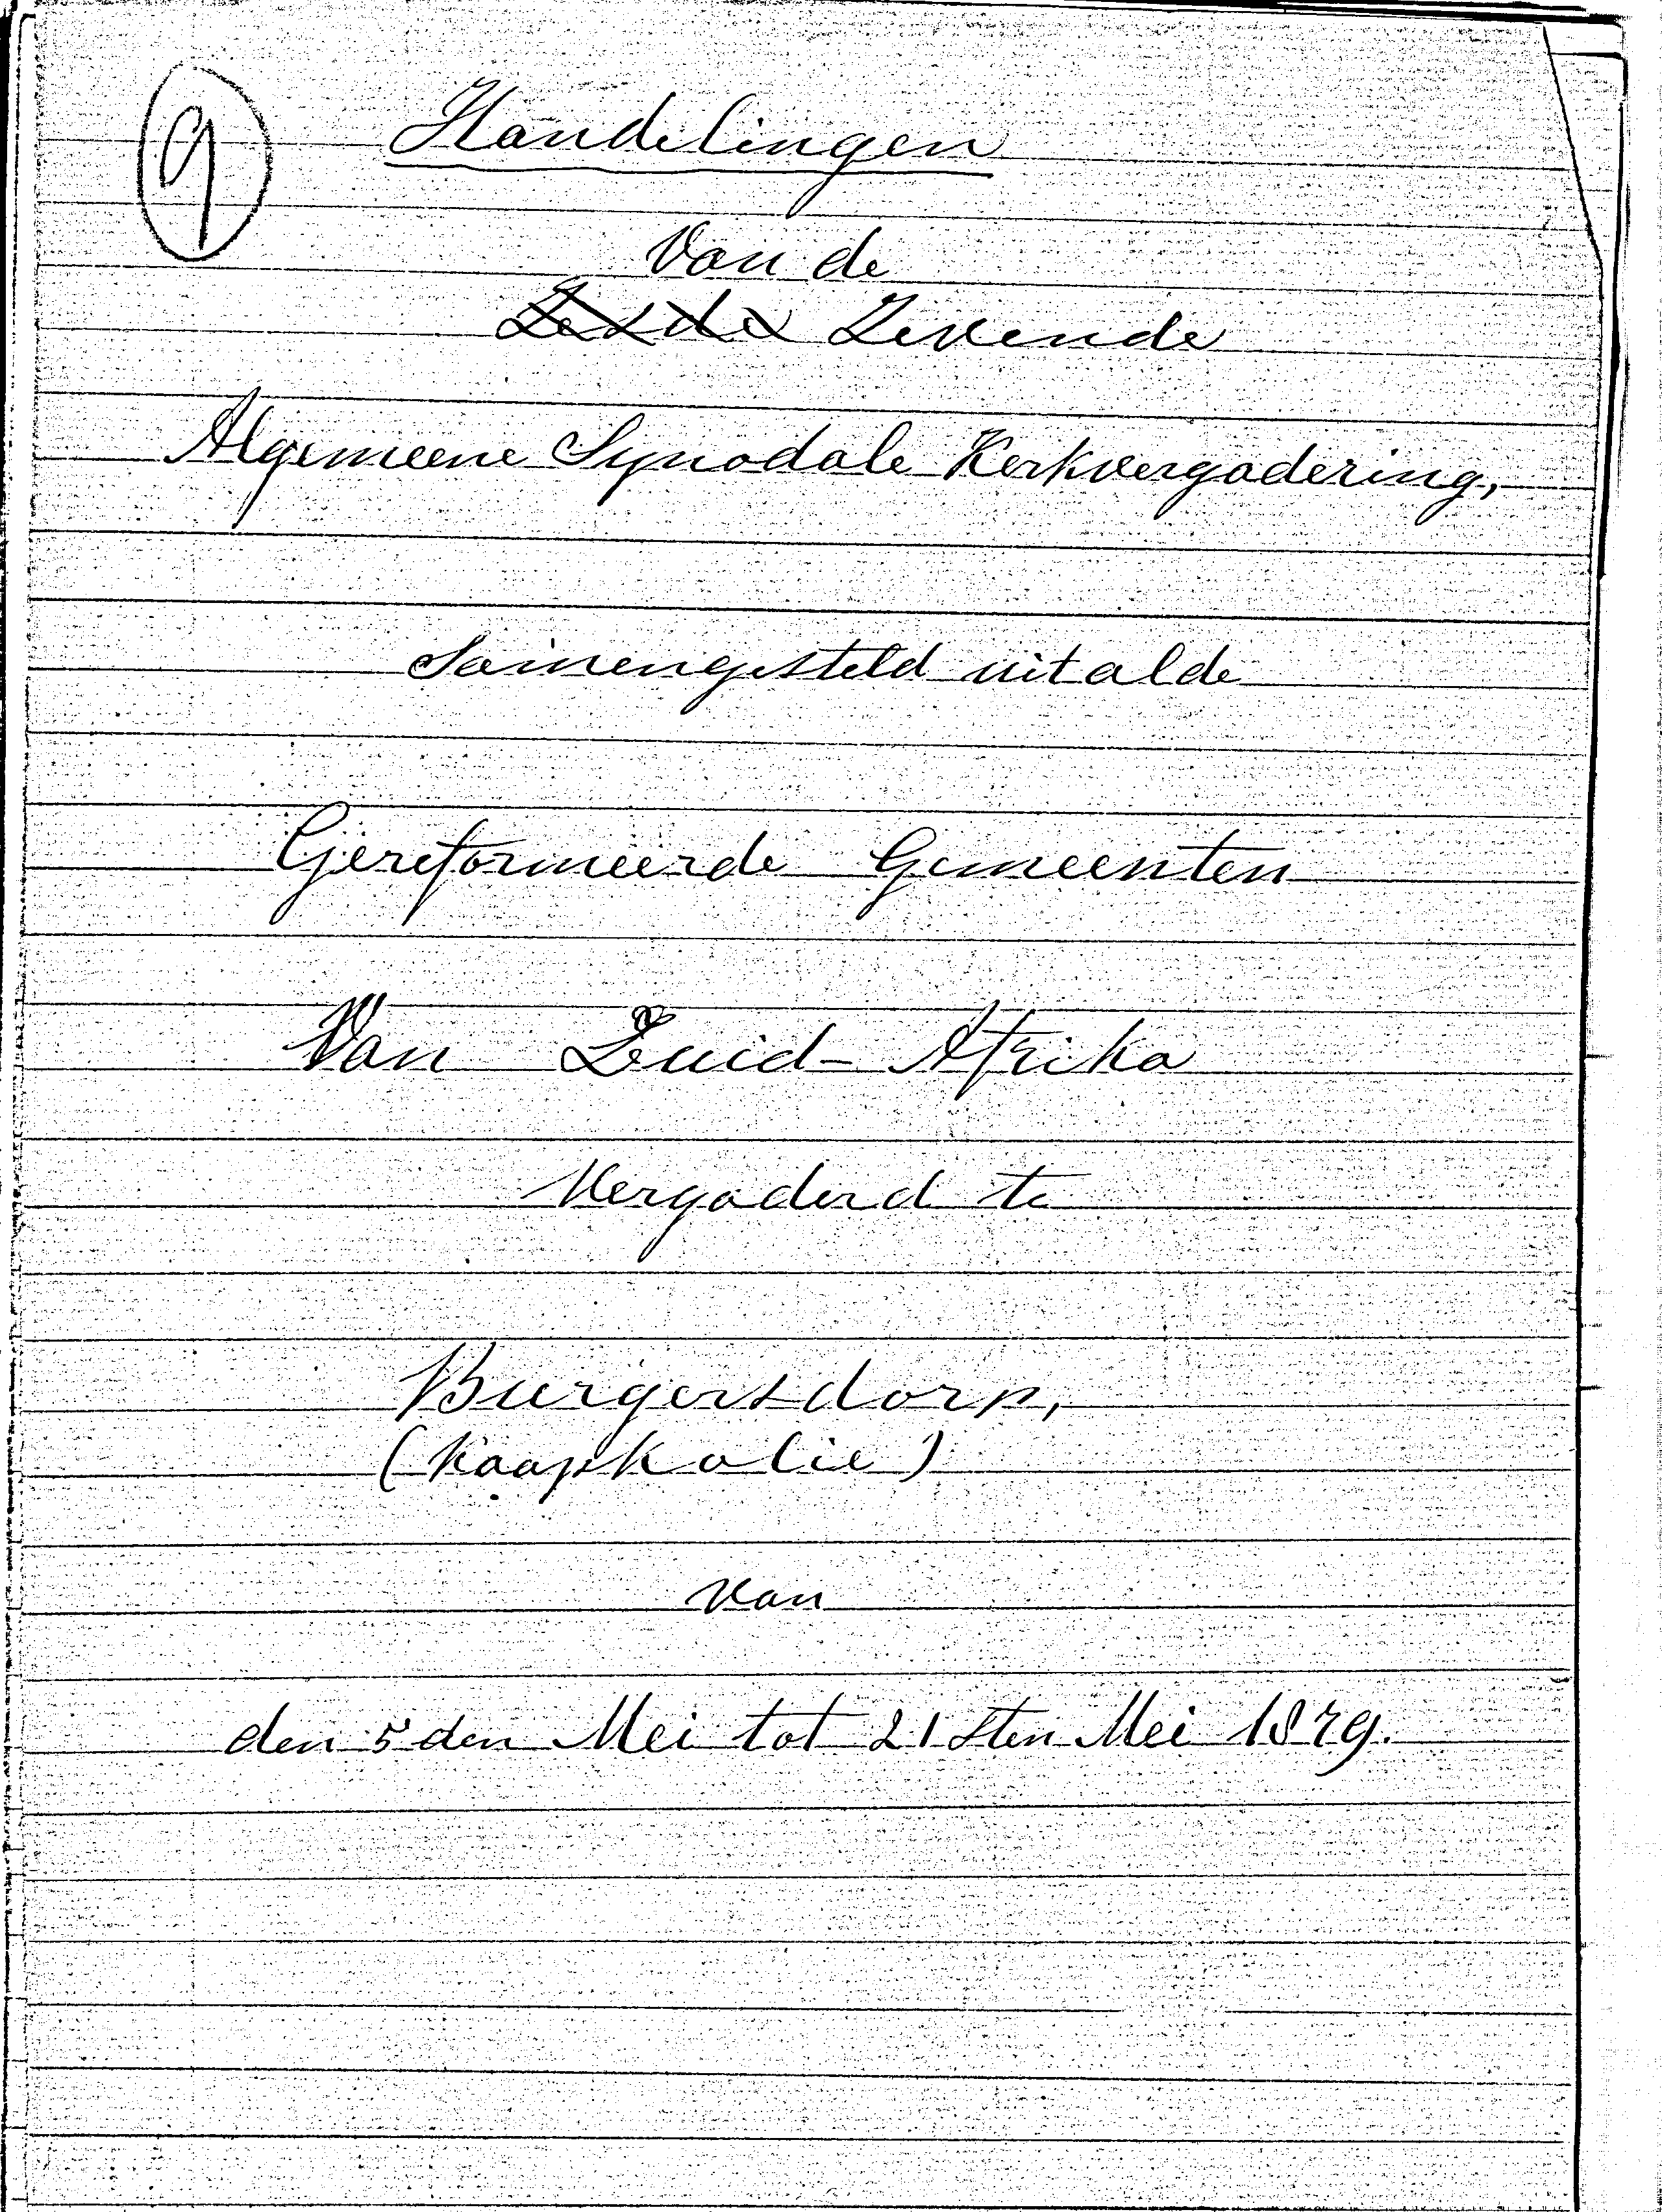 9 Handelingen
Van de
Zesde Zevende
Algemeene Synodale Kerkvergadering,
Samengesteld uit al de
Gereformeerde Gemeenten
Van Zuid-Afrika
Vergaderd te
Burgersdorp,
(KaapKolie)
van
den 5 den Mei tot 21 sten Mei 1879.